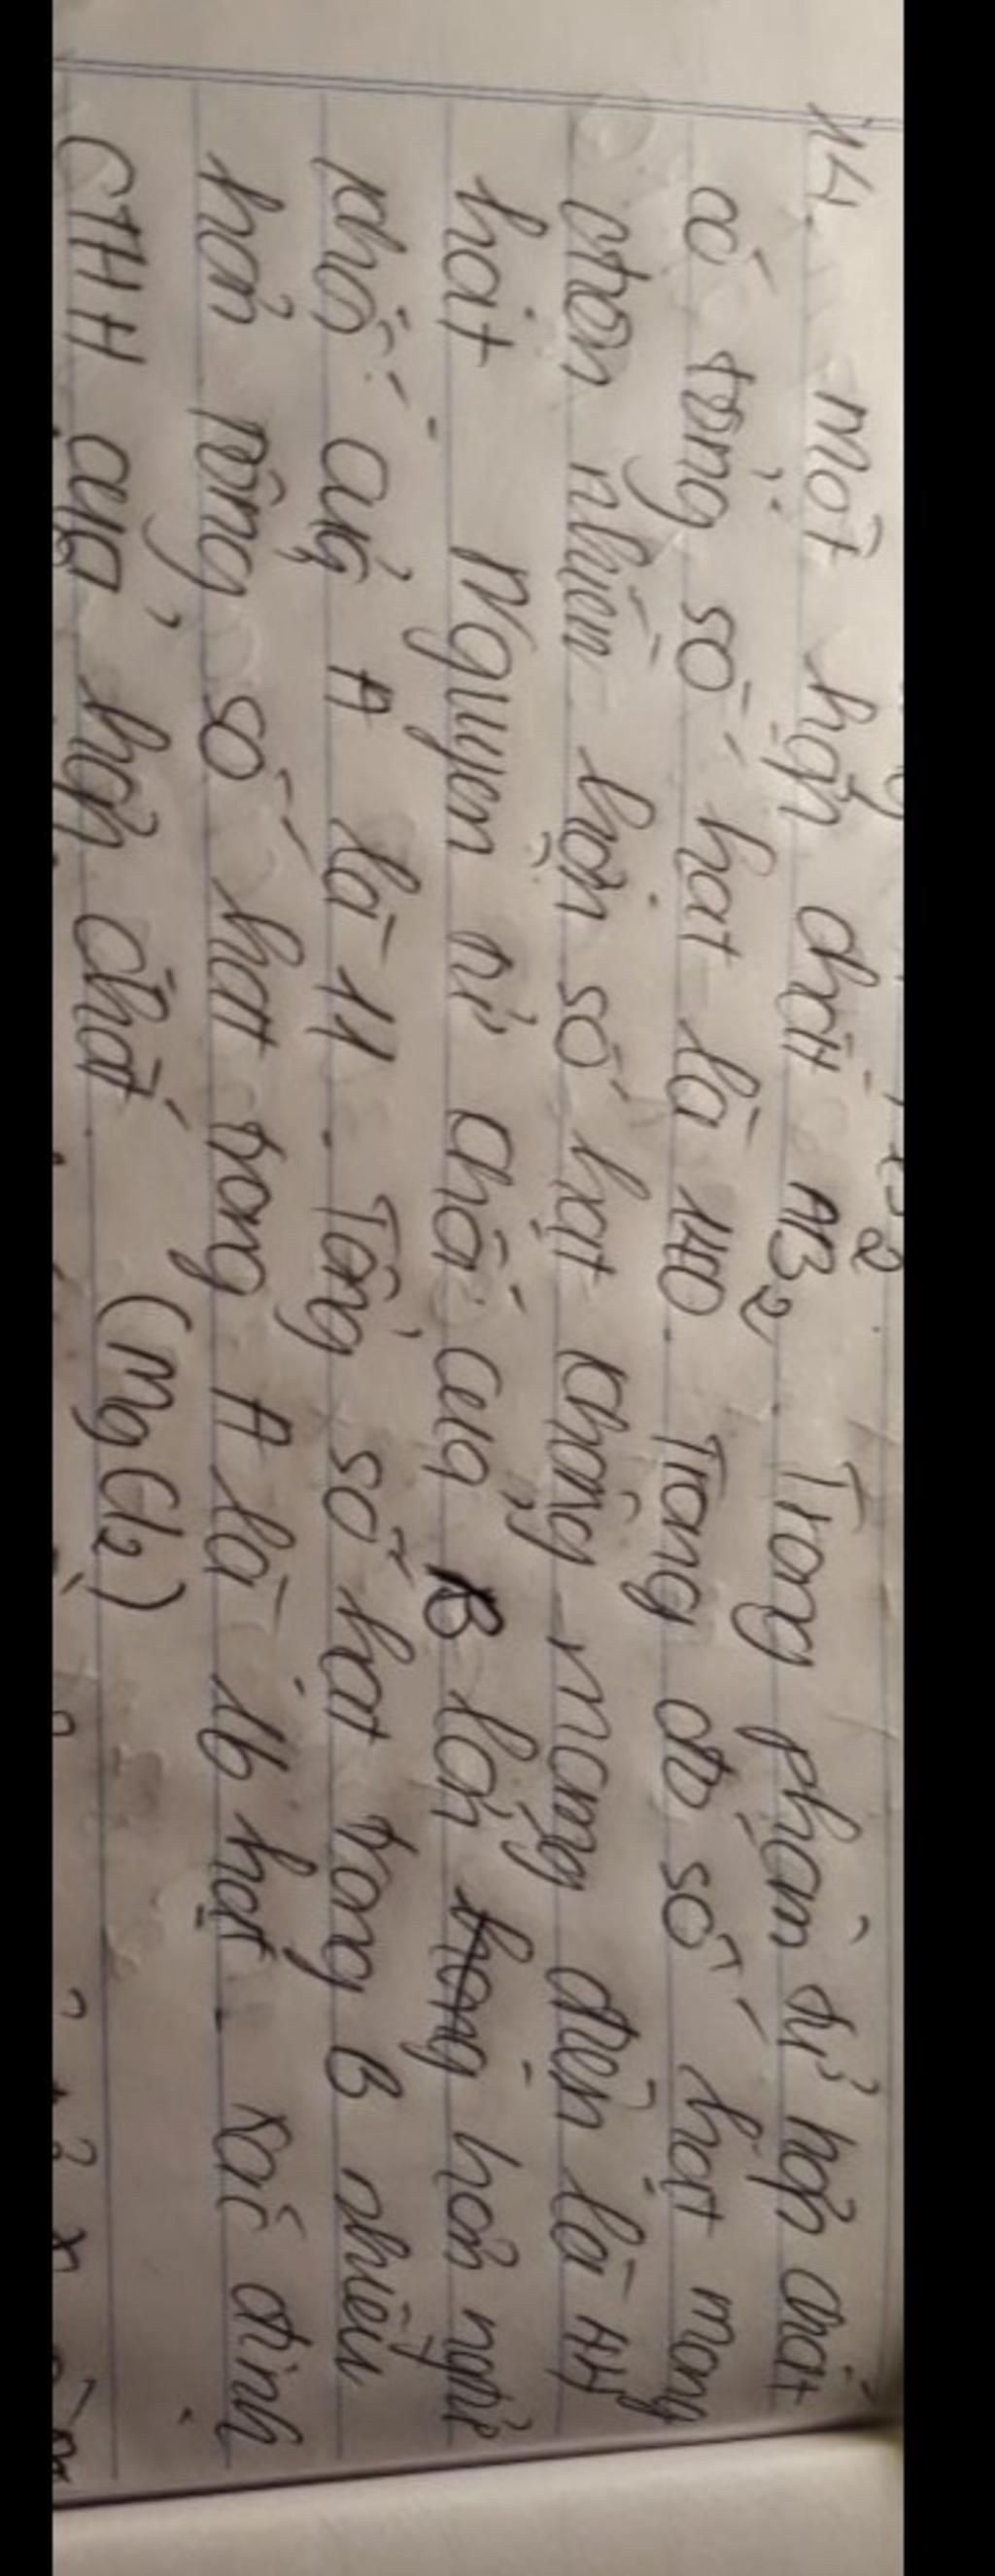 14. Một hợp chất AB2. Trong phân tử hợp chất
có tổng số hạt là 140. Trong đó số hạt mang
điện nhiều hơn số hạt không mang điện là 44
hạt. Nguyên tử khối của B lớn hơn ngtử
khối của A là 11. Tổng số hạt trong B nhiều
hơn tổng số hạt trong A là 16 hạt. Xác định
CTHH của hợp chất. (MgCl2)